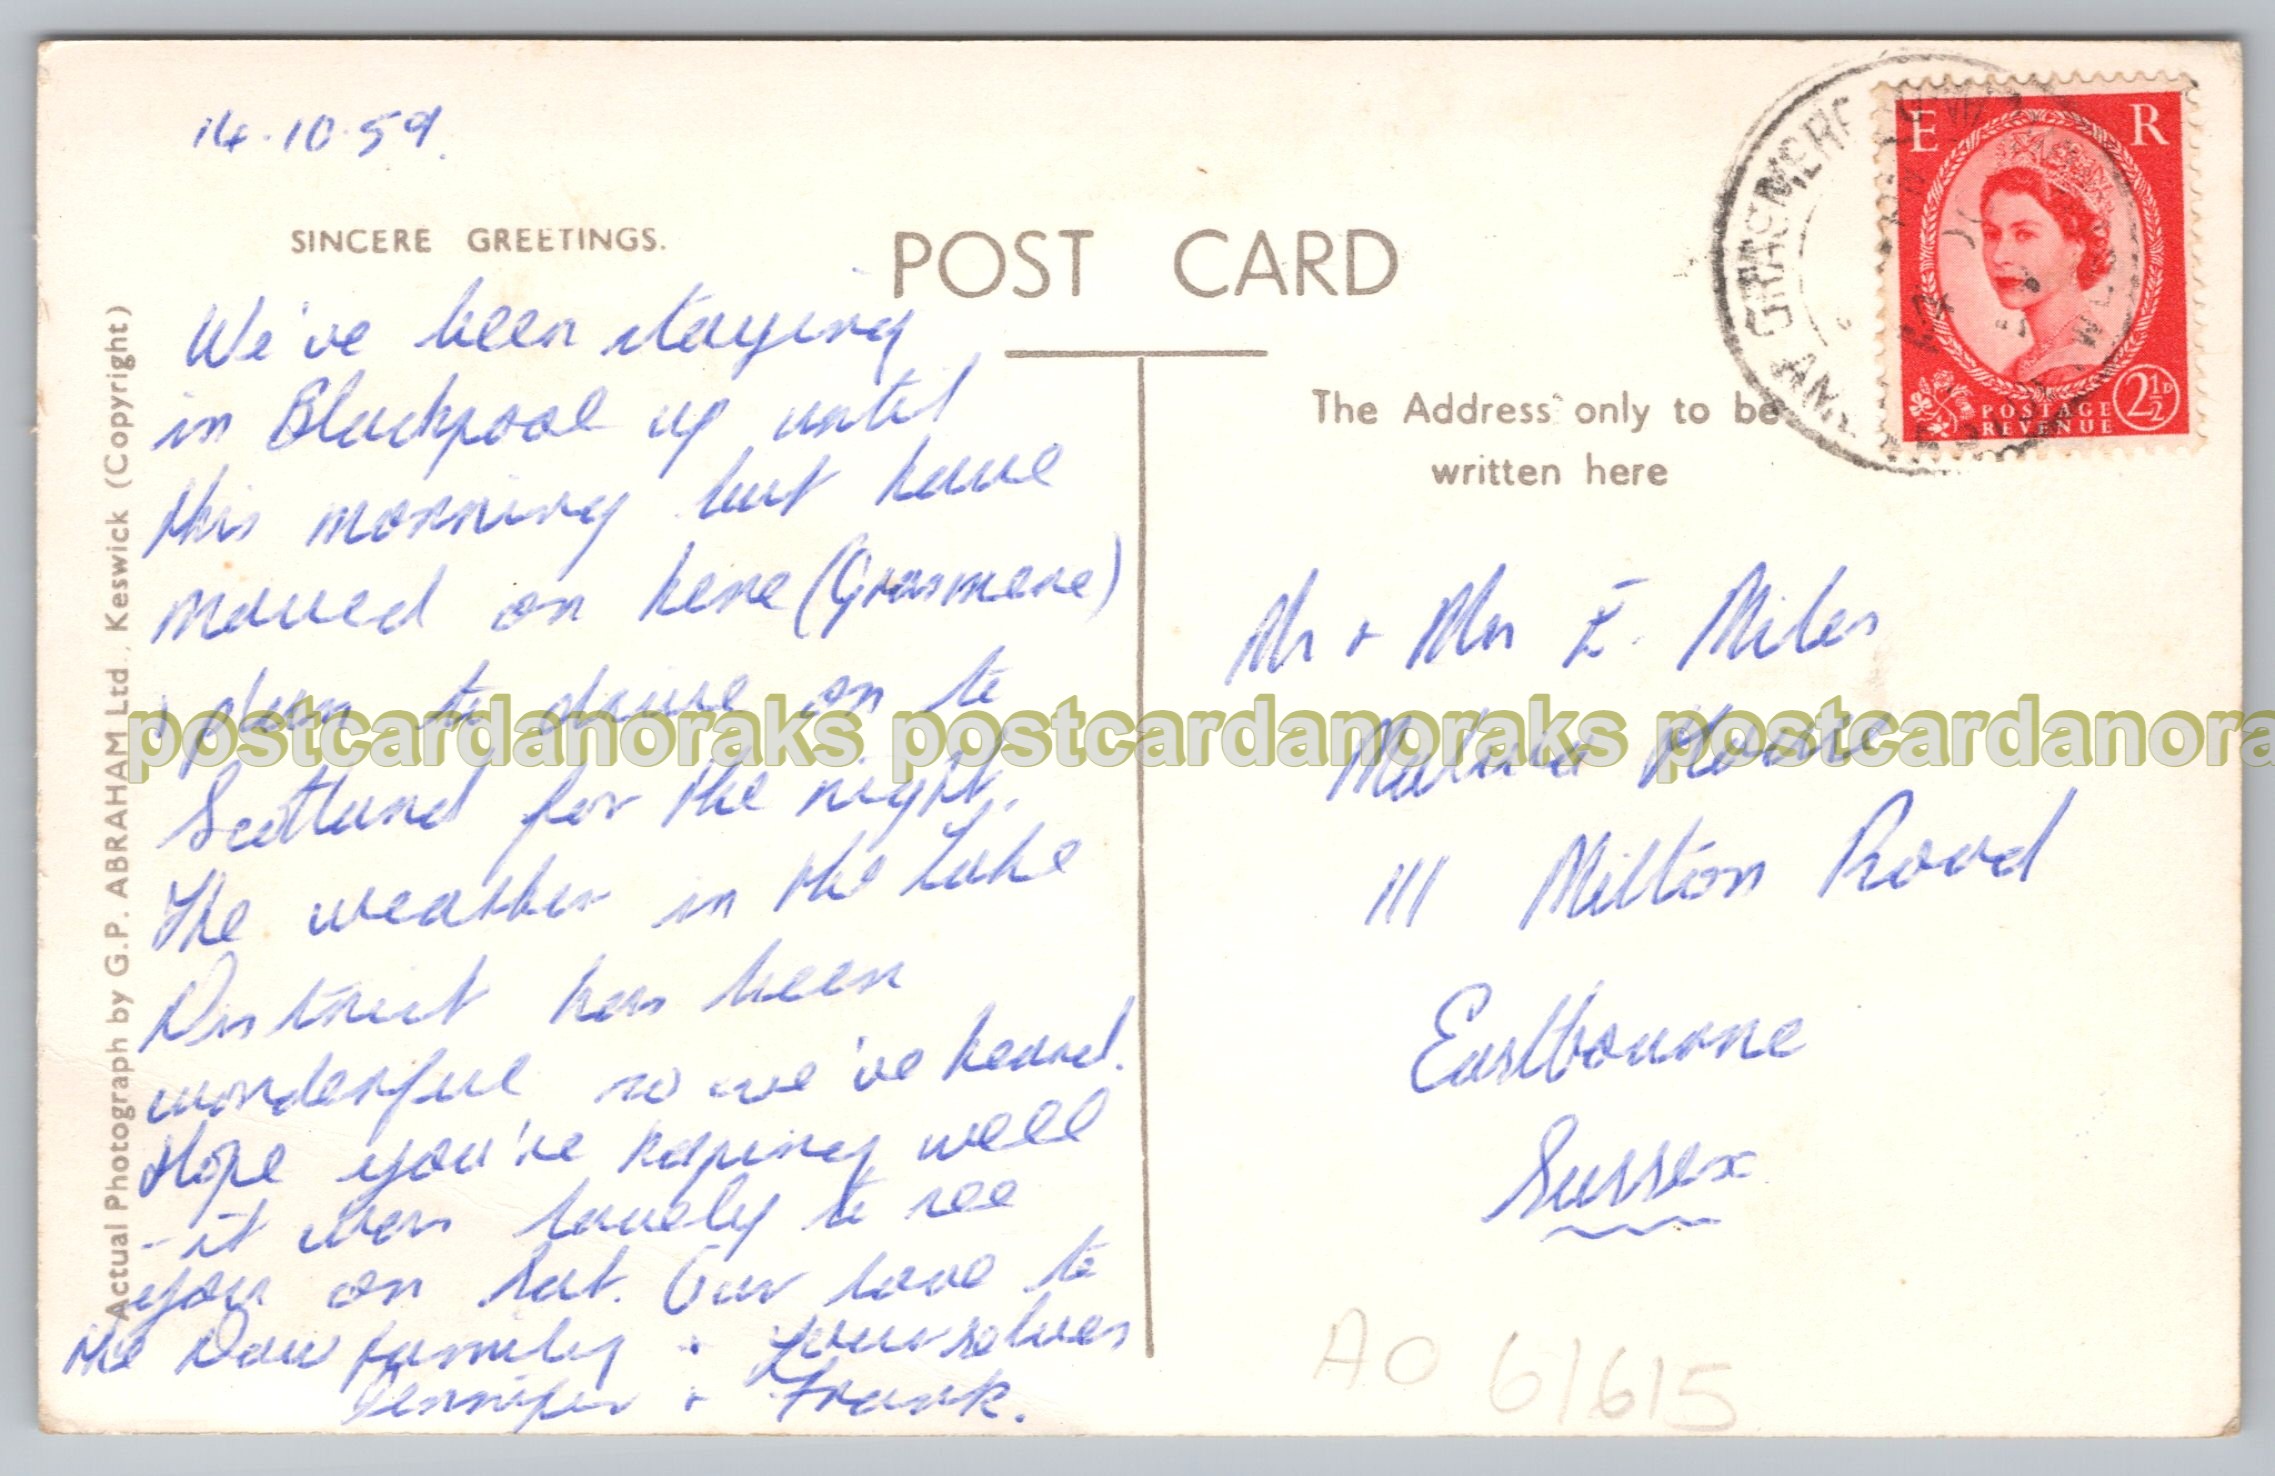 14.10.59.
SINCERE GREETINGS.
We've been staying
in Blackpool up until
this morning but have
moved on here (Grasmere)
+ plan to drive on to
Scotland for the night.
The weather in the Lake
District has been
wonderful so we've heard.
Hope you're keeping well
- it was lovely to see
you on Sat. Our love to
the Daw family + yourselves
Jennifer + Frank.
Actual Photograph by G.P. ABRAHAM Ltd., Keswick (Copyright)
POST CARD
The Address only to be
written here
E R
POSTAGE
REVENUE
2½D
GRASMERE
Mr + Mrs E. Miles
House
111 Milton Road
Eastbourne
Sussex
AO 61615
postcardanoraks postcardanoraks postcardanora